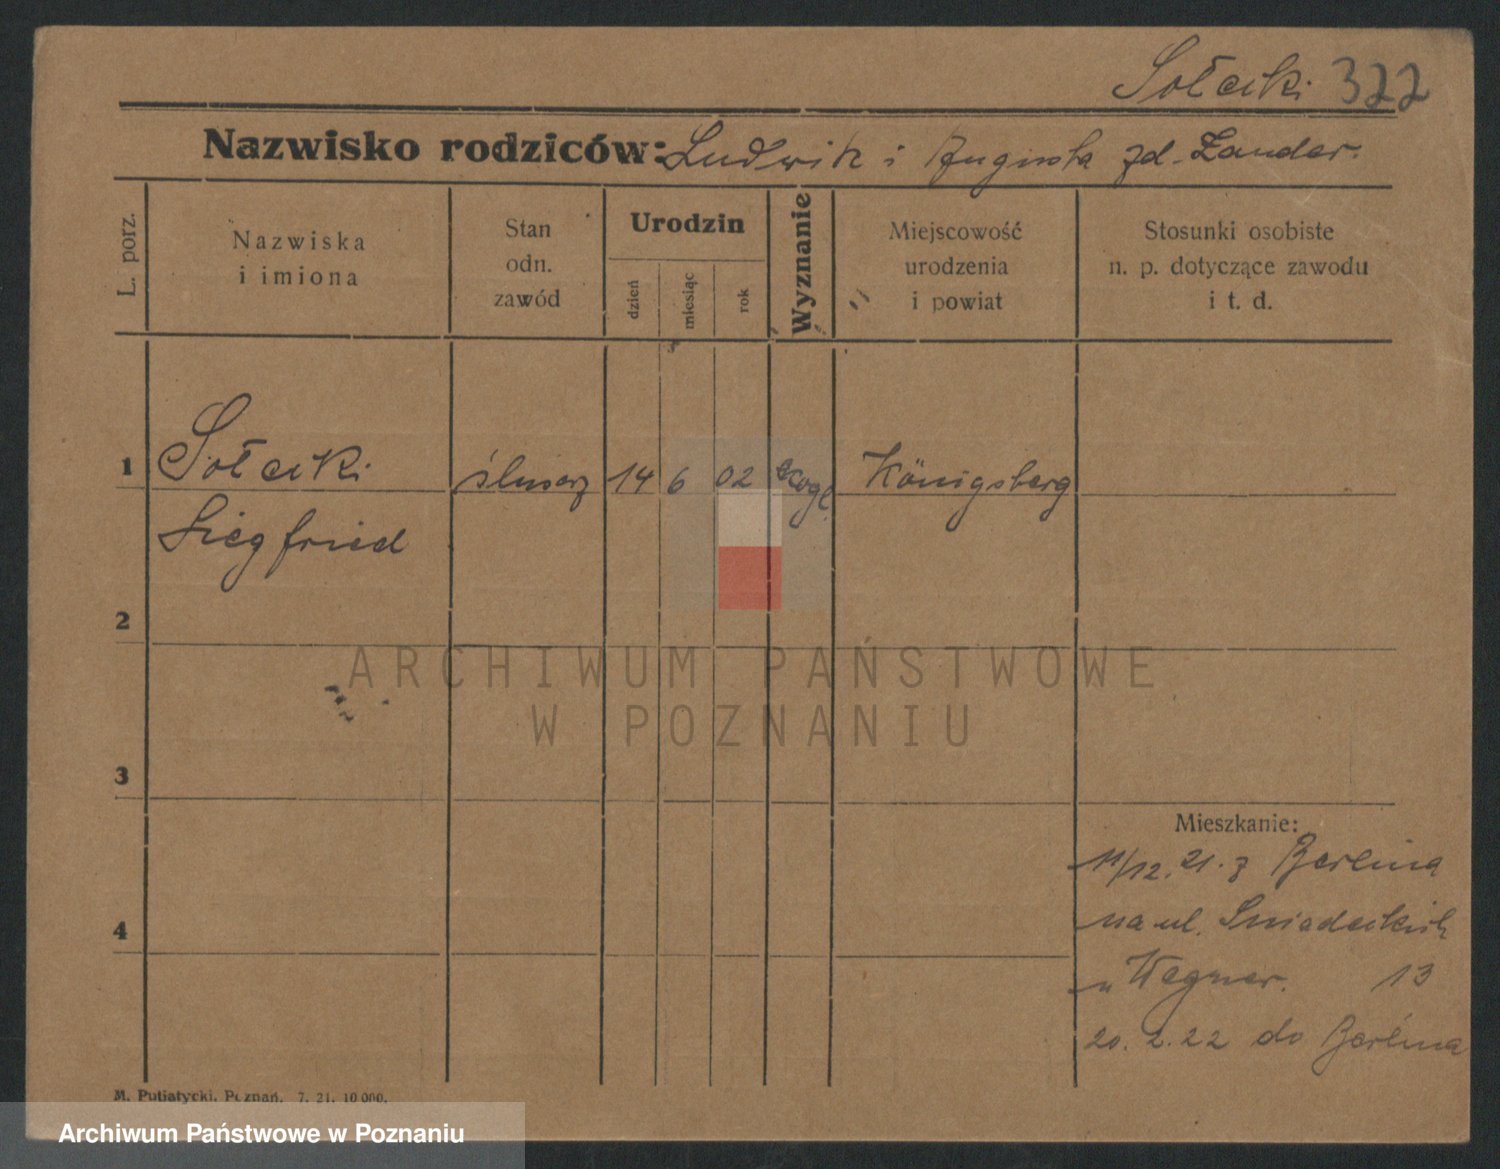 Sołecki 322
Nazwisko rodziców: Ludwik i Augusta zd. Zander.
L. porz.
Nazwiska
i imiona
Stan
odn.
zawód
Urodzin
dzień
miesiąc
rok
Wyznanie
Miejscowość
urodzenia
i powiat
Stosunki osobiste
n. p. dotyczące zawodu
i t. d.
1 Sołecki ślusarz 14 6 02 ewgl. Königsberg
Siegfried
2
3
4
Mieszkanie:
11/12. 21. z Berlina
na ul. Sniadeckich
u Wegner. 13
20. 2. 22 do Berlina
M. Putiatycki, Poznań. 7. 21. 10 000.
ARCHIWUM PAŃSTWOWE
W POZNANIU
Archiwum Państwowe w Poznaniu